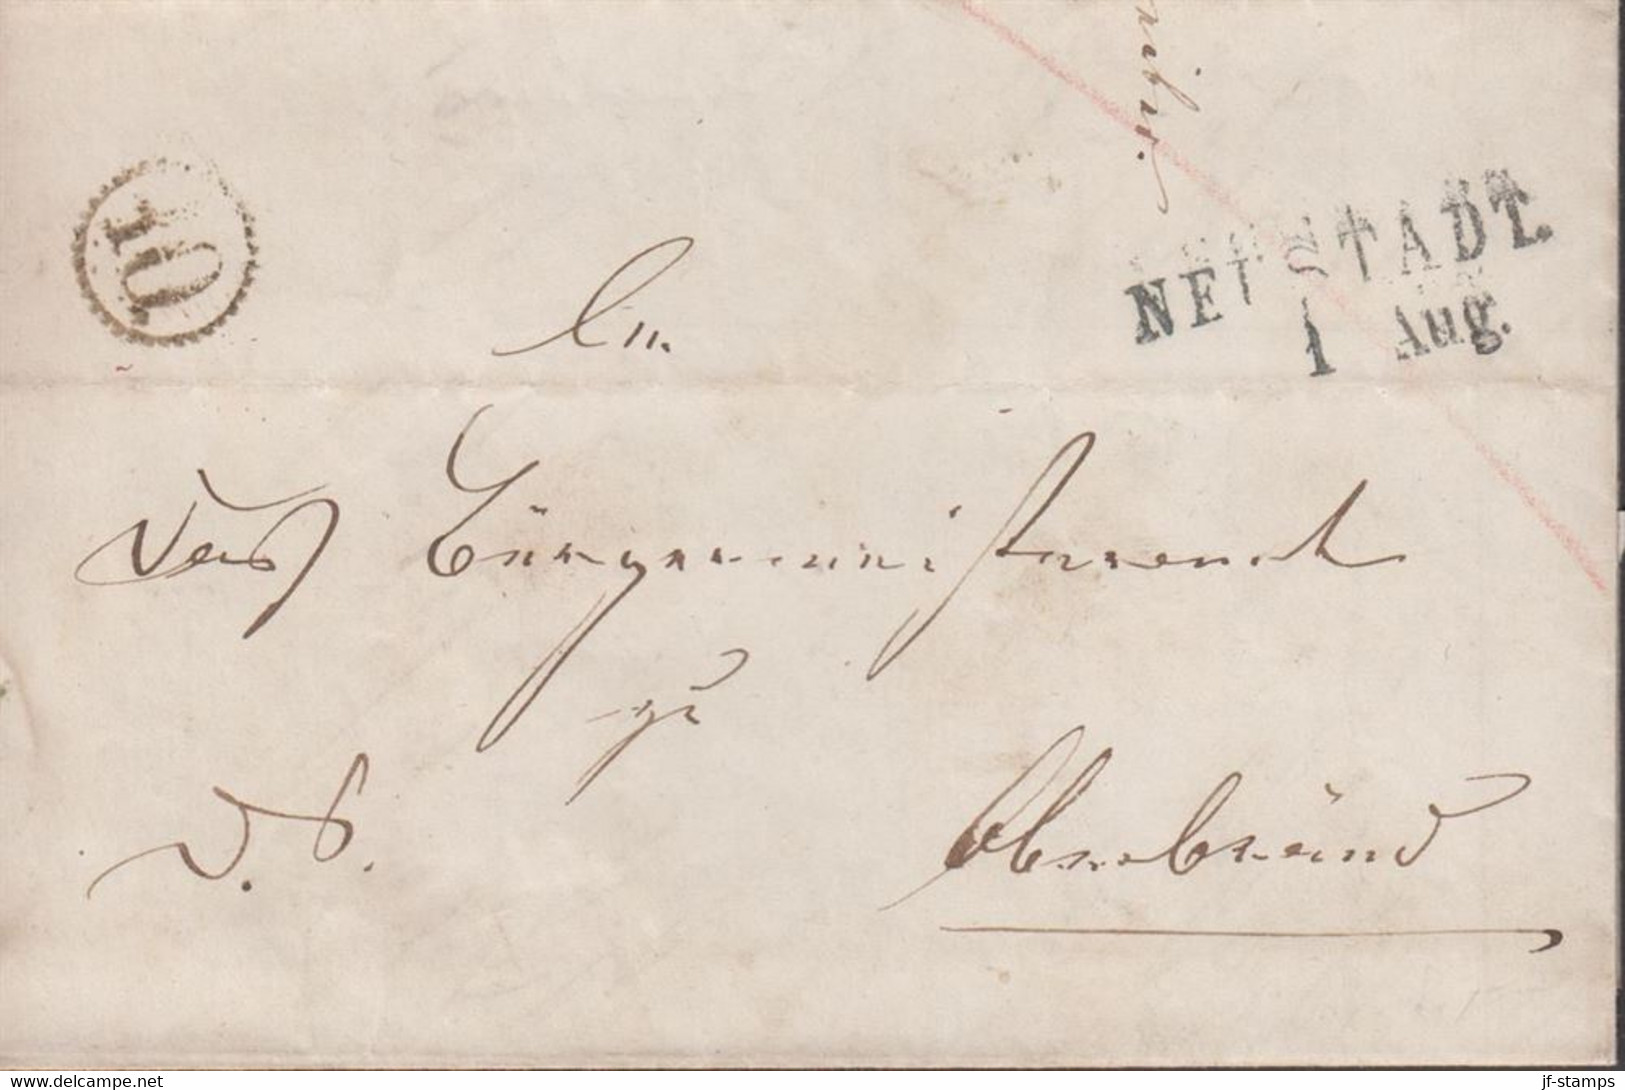 NEUSTADT.
1 Aug.
10
An
das Bürgermeisteramt
zu
D. S.
Oberbränd
www.delcampe.net
jf-stamps